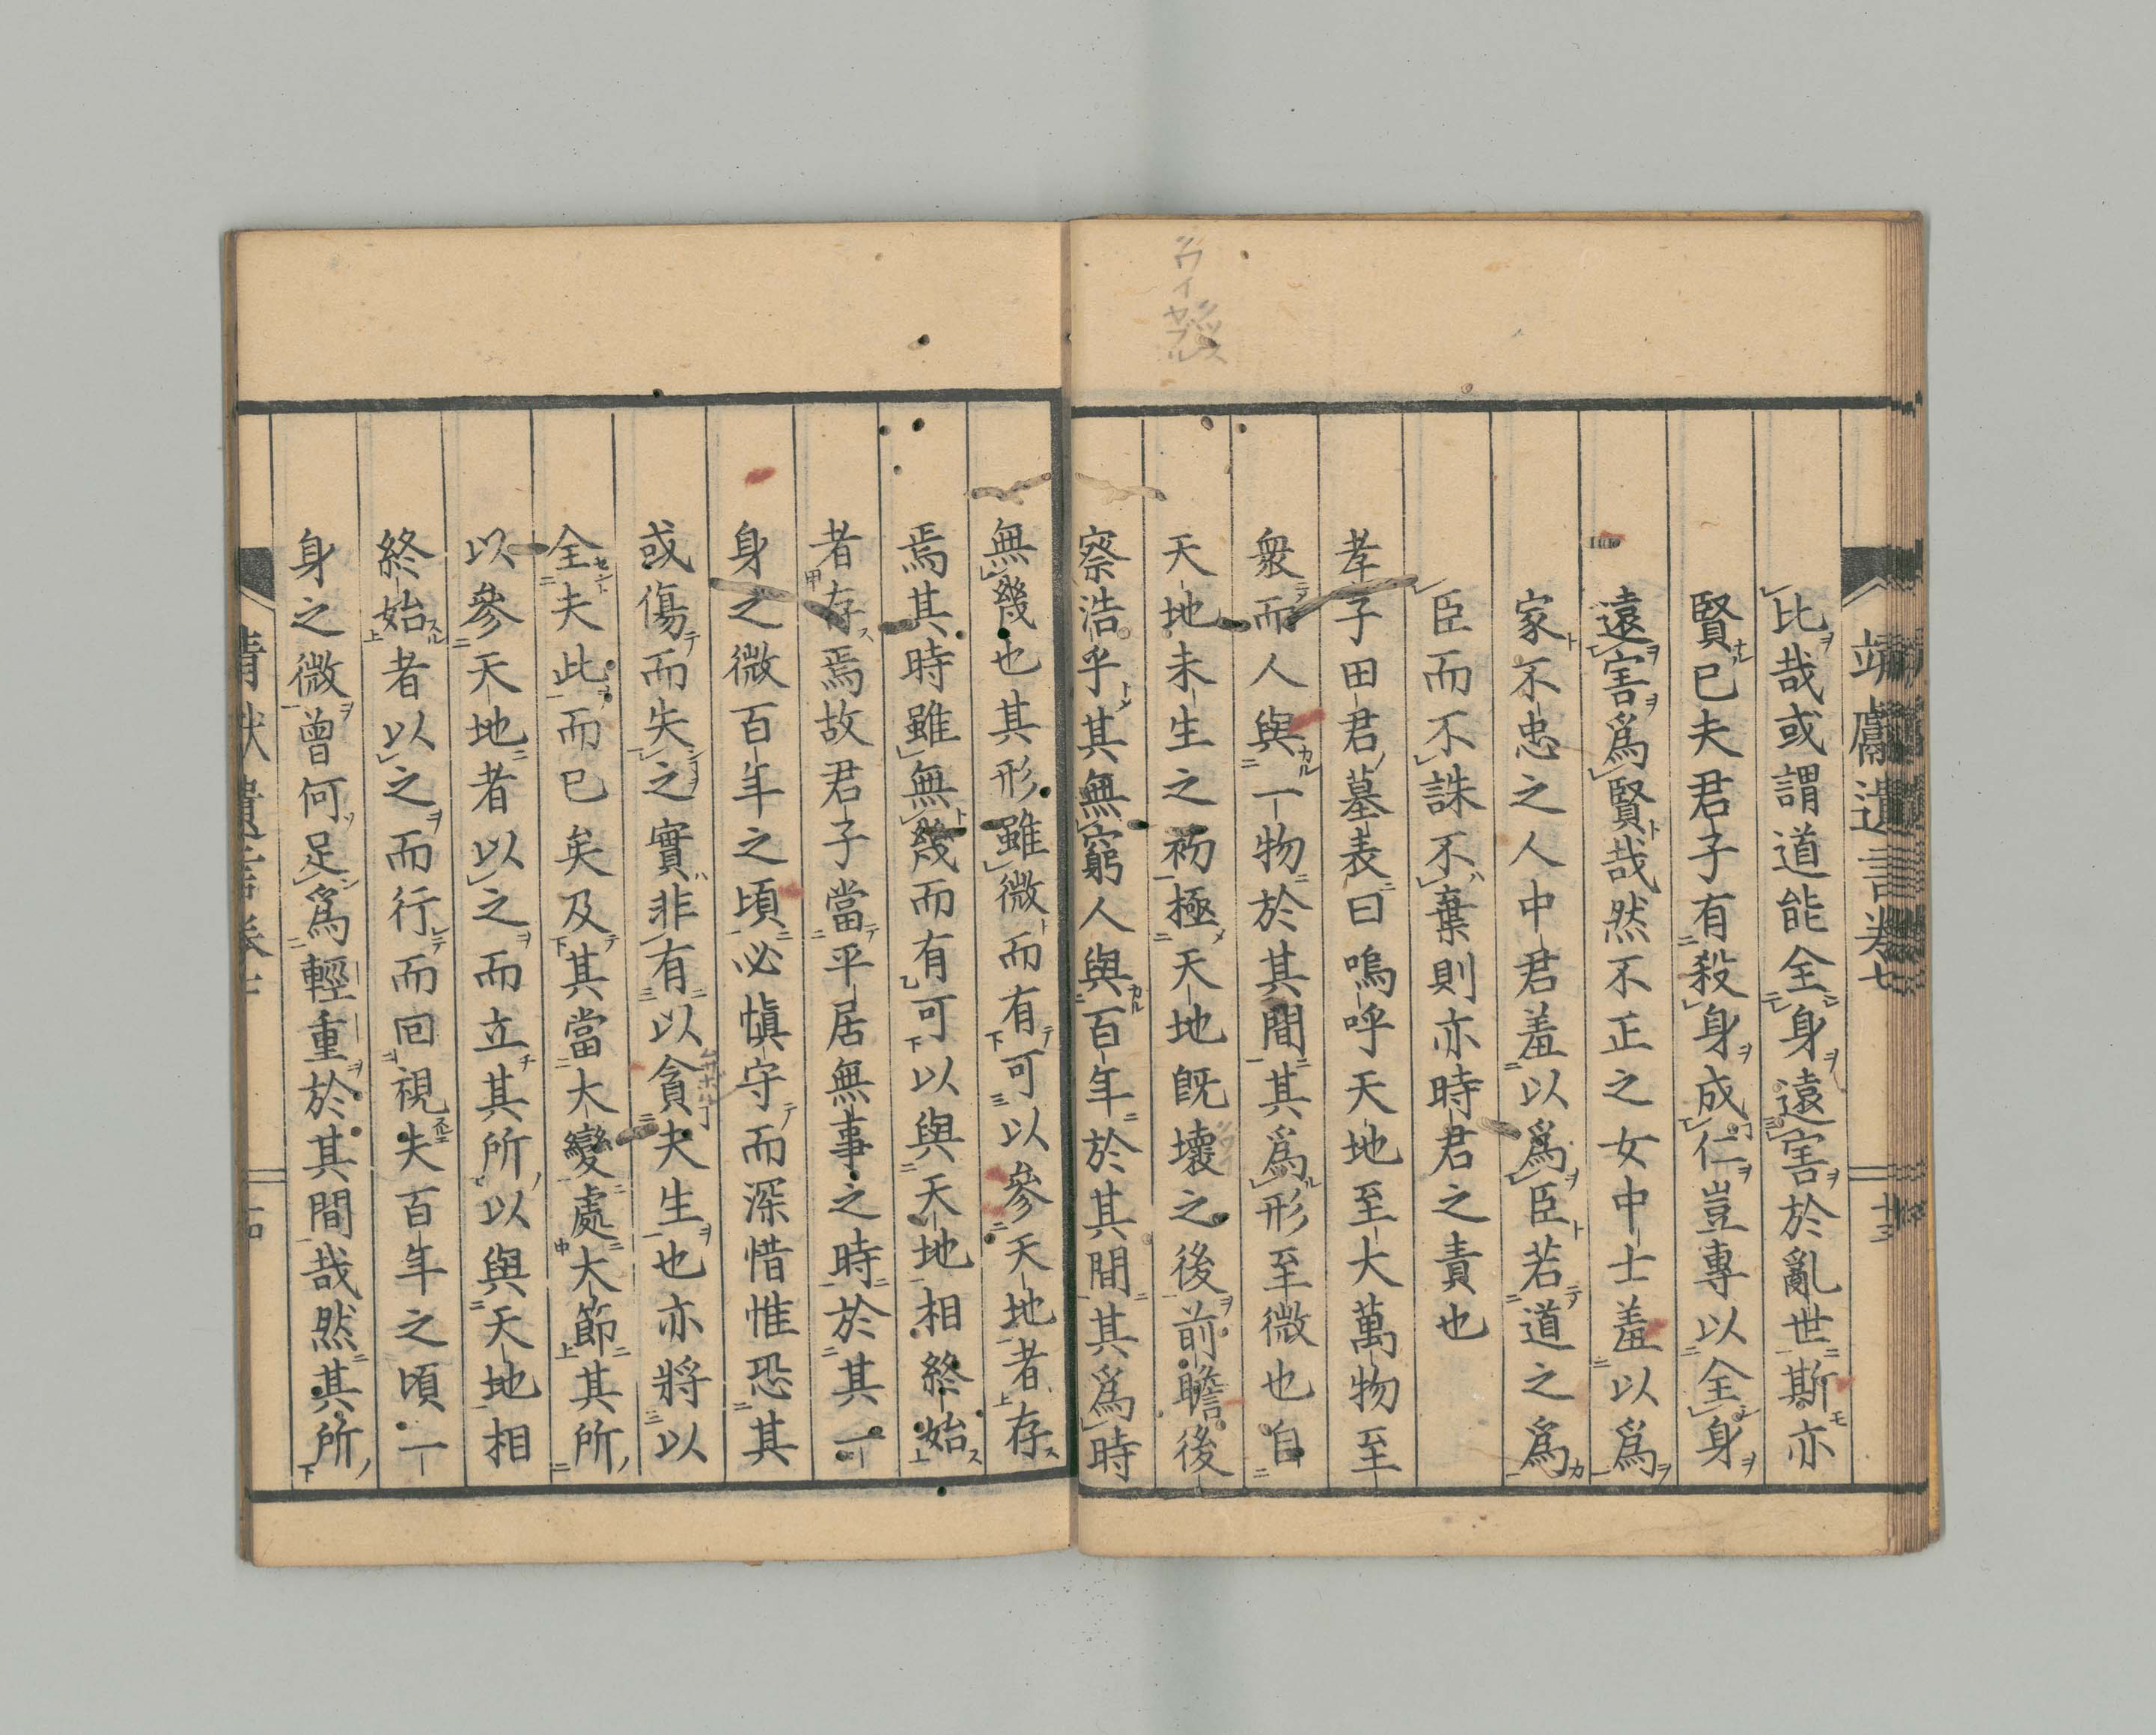 靖獻遺言卷七
十三
比哉或謂道能全身遠害於亂世斯亦
賢已夫君子有殺身成仁豈專以全身
遠害爲賢哉然不正之女中士羞以爲
家不忠之人中君羞以爲臣若道之爲
臣而不誅不棄則亦時君之責也
孝子田君墓表曰嗚呼天地至大萬物至
衆而人與一物於其間其爲形至微也自
天地未生之初極天地既壞之後前瞻後
察浩乎其無窮人與百年於其間其爲時
無幾也其形雖微而有可以參天地者存
焉其時雖無幾而有可以與天地相終始
者存焉故君子當平居無事之時於其一
身之微百年之頃必愼守而深惜惟恐其
或傷而失之實非有以貪夫生也亦將以
全夫此而已矣及其當大變處大節其所
以參天地者以之而立其所以與天地相
終始者以之而行而回視夫百年之頃一
身之微曾何足爲輕重於其間哉然其所